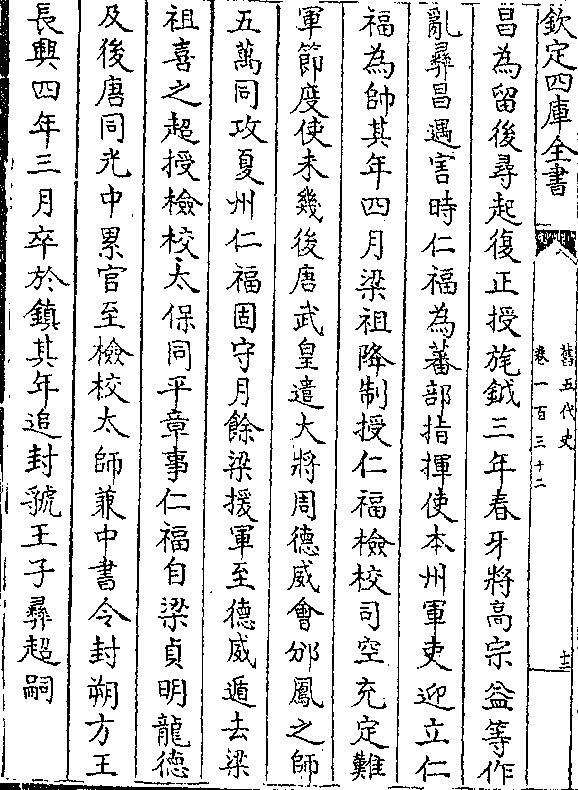 欽定四庫全書
舊五代史
卷一百三十二
十三
昌為留後尋起復正授旄鉞三年春牙將高宗益等作
亂彞昌遇害時仁福為蕃部指揮使本州軍吏迎立仁
福為帥其年四月梁祖降制授仁福檢校司空充定難
軍節度使未幾後唐武皇遣大將周德威會邠鳳之師
五萬同攻夏州仁福固守月餘梁援軍至德威遁去梁
祖喜之超授檢校太保同平章事仁福自梁貞明龍德
及後唐同光中累官至檢校太師兼中書令封朔方王
長興四年三月卒於鎮其年追封虢王子彞超嗣